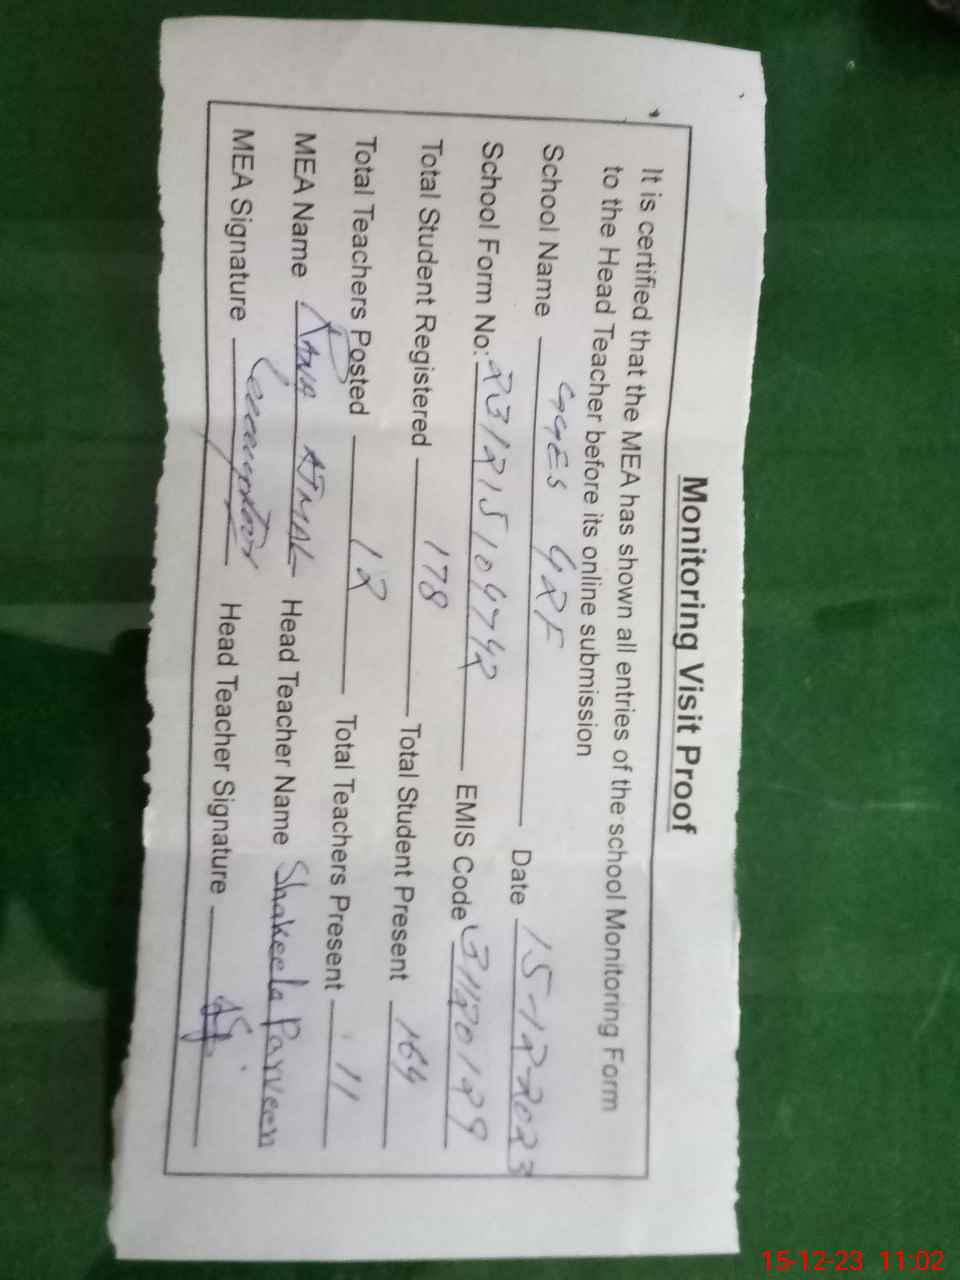 Monitoring Visit Proof
It is certified that the MEA has shown all entries of the school Monitoring Form
to the Head Teacher before its online submission
School Name GGES 42F Date 15-12-2023
School Form No: 231215104742 EMIS Code 31120129
Total Student Registered 178 Total Student Present 164
Total Teachers Posted 12 Total Teachers Present 11
MEA Name RANA AJMAL Head Teacher Name Shakeela Parveen
MEA Signature Head Teacher Signature
15-12-23 11:02